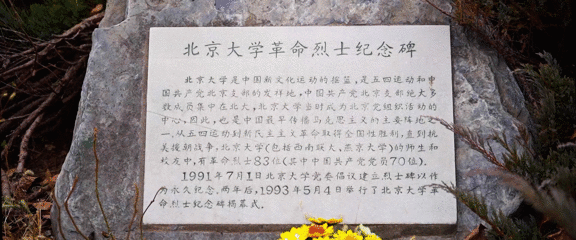 北京大学革命烈士纪念碑
北京大学是中国新文化运动的摇篮,是五四运动和中
国共产党北京支部的发祥地,中国共产党北京支部绝大多
数成员集中在北大,北京大学当时成为北京党组织活动的
中心,因此,也是中国最早传播马克思主义的主要阵地之
一.从五四运动到新民主主义革命取得全国性胜利,直到抗
美援朝战争,北京大学(包括西南联大,燕京大学)的师生和
校友中,有革命烈士83位(其中中国共产党党员70位).
1991年7月1日北京大学党委倡议建立烈士碑以作
为永久纪念.两年后,1993年5月4日举行了北京大学革
命烈士纪念碑揭幕式.